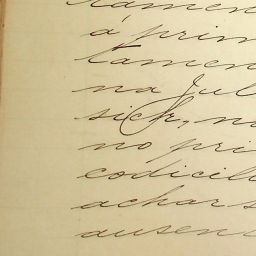 tamen
á prim
tamen
na Jul
sich, n
no pri
codicil
achar s
ausen